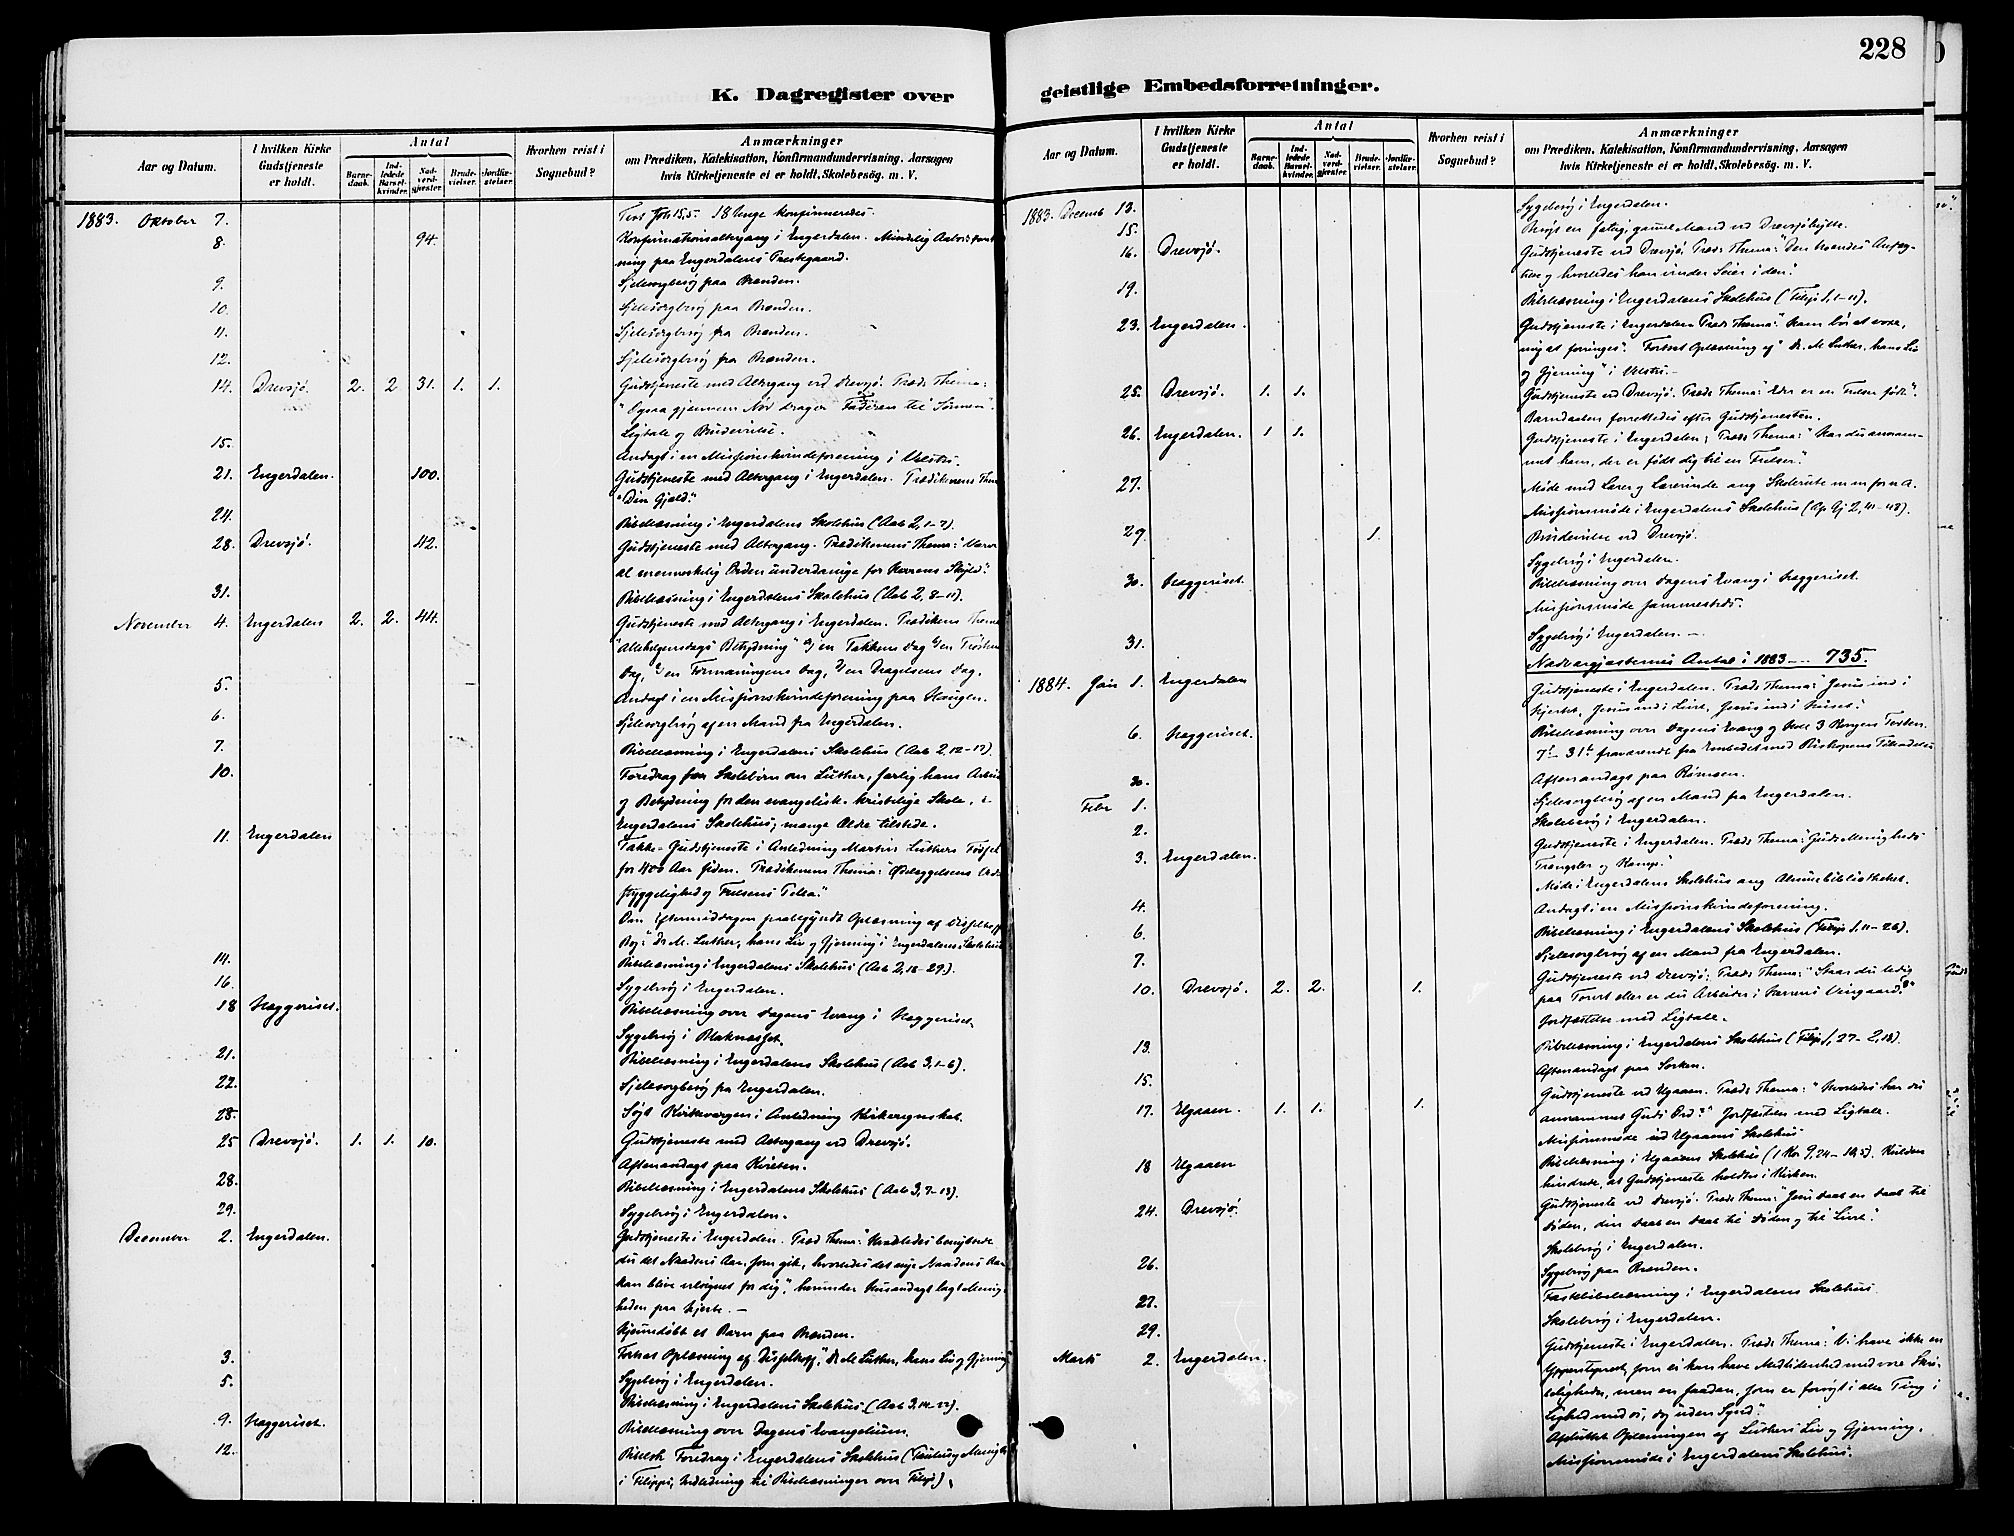 228
K. Dagregister over
geistlige Embedsforretninger.
Aar og Datum.
I hvilken Kirke Gudstjeneste er holdt.
Antal
Barne-daab.
Ind-ledede Barsel-kvinder.
Nad-verd-gjester.
Brude-vielser.
Jordfæ-stelser.
Hvorhen reist i Sognebud?
Anmærkninger
om Prædiken, Katekisation, Konfirmandundervisning, Aarsagen
hvis Kirketjeneste ei er holdt, Skolebesög. m. V.
1883. Oktober 7. 18 Unge konfirmeredes.
8. 94. Konfirmationsaltergang i Engerdalen.
ning paa Engerdalens Prestegaard.
9. Sjelesorgbesøg paa Brænden.
10. Sjelesorgbesøg paa Brænden.
Sjelesorgbesøg fra Brænden.
12. Sjelesorgbesøg fra Brænden.
14. Drevsjø. 2. 2 31. 1. 1. Gudstjeneste med Altergang ved Drevsjø. Præds Thema:
"Ogsaa gjennem Nød drager Faderen til Sønnen".
Ligtale og Brudevielse.
15. Andagt i en Missjonskvindeforening i
21. Engerdalen. 100. Gudstjeneste med Altergang i Engerdalen. Prædikenens
"Din Gjæld."
24. Bibellæsning i Engerdalens Skolehus (Aab 2, 1-7).
28. Drevsjø. 42. Gudstjeneste med Altergang. Prædikenens Thema:
al menneskelig Orden underdanige for Herrens Skyld."
31. Bibellæsning i Engerdalens Skolehus (Aab 2, 8-11).
November 4. Engerdalen 2. 2. 44. Gudstjeneste med Altergang i Engerdalen. Prædikens Thema
"Allehelgensdags Betydning" en Takkens Dag en Trøstens
Dag, en Formaningens Dag, en Dag.
5. Andagt i en Missjonskvindeforening paa Haugen.
6. Sjelesorgbesøg af en Mand fra Engerdalen.
7. Bibellæsning i Engerdalens Skolehus (Aab 2, 12-17).
10. Foredrag for Skolebørn om Luther, særlig hans Arbeide
og Betydning for den evangelisk-kristelige Skole, i
Engerdalens Skolehus; mange Ældre tilstede.
11. Engerdalen Takke-Gudstjeneste i Anledning Martin Luthers Fødsel
for 400 Aar siden. Prædikenens Thema: "Ødelæggelsens
styggelighed og Frelsens
Om Eftermiddagen paabegyndt Oplæsning af
Bog: "Dr M. Luther, hans Liv og Gjerning" i Engerdalens Skolehus
14. Bibellæsning i Engerdalens Skolehus (Aab 2, 18-29).
16. Sygebesøg i Engerdalen.
18 Heggeriset. Bibellæsning over Dagens Evang i Heggeriset.
Sygebesøg i
21. Bibellæsning i Engerdalens Skolehus (Aab 3, 1-6).
22. Sjelesorgbesøg fra Engerdalen.
Søgt Kirkevergen i Anledning Kirkeregnskabet.
25 Drevsjø. 1. 1. 10. Gudstjeneste med Altergang ved Drevsjø.
Aftenandagt paa
28. Bibellæsning i Engerdalens Skolehus (Aab 3, 7-13).
29. Sygebesøg i Engerdalen.
December 2. Engerdalen. Gudstjeneste i Engerdalen. Præd Thema: Hvorledes benyttede
du det Naadens Aar, som gik, hvorledes det nye Naadens Aar
kan blive velsignet for dig", herunder Husandagt lagt Menig-
heden paa Hjerte. —
Hjemmedøbt et Barn paa Brænden.
3. Fortsat Oplæsning af Dr M Luther, hans Liv og Gjerning
5. Sygebesøg i Engerdalen.
Bibellæsning i Engerdalens Skolehus (Aab 3, 14-22).
9. Heggeriset. Bibellæsning over Dagens Evangelium.
12. Bibelsk Foredrag i Engerdalens Skolehus (Paulus og Menigh
i Filippi, Indledning til Bibellæsninger over Filip).
Aar og Datum.
I hvilken Kirke Gudstjeneste er holdt.
Antal
Barne-daab.
Ind-ledede Barsel-kvinder.
Nad-verd-gjester.
Brude-vielser.
Jordfæ-stelser.
Hvorhen reist i Sognebud?
Anmærkninger
om Prædiken, Katekisation, Konfirmandundervisning, Aarsagen
hvis Kirketjeneste ei er holdt, Skolebesög. m. V.
1883. Decemb 13. Sygebesøg i Engerdalen.
15. Besøgt en fattig, gammel Mand ved Drevsjøhytte.
16. Drevsjø. Gudstjeneste ved Drevsjø. Præds Thema:
og hvorledes han vinder Seier i den."
19. Bibellæsning i Engerdalens Skolehus (Filip 1, 1-11).
23. Engerdalen. Gudstjeneste i Engerdalen Præds Thema: "Ham bør at voxe,
mig at forringes". Fortsat Oplæsning af "Dr. M Luther, hans Liv
og Gjerning" i
25. Drevsjø. 1. 1. Gudstjeneste ved Drevsjø. Præds Thema: Eder er en Frelser født".
Barnedaaben forrettedes efter Gudstjenesten.
26. Engerdalen. 1 1. Gudstjeneste i Engerdalen; Præds Thema: "Har du annam-
met ham, der er født dig til en Frelser".
27. Møde med Lærer og Lærerinde ang Skolerute m m
Missjonsmøde i Engerdalens Skolehus (Ap. Gj 2, 41-48).
29 1. Brudevielse ved Drevsjø.
Sygebesøg i Engerdalen.
30. Heggeriset. Bibellæsning over Dagens Evang i Heggeriset.
Missjonsmøde sammesteds.
31. Sygebesøg i Engerdalen. —
Nadvergjæsternes Antal i 1883 — 735.
1884. Jan 1. Engerdalen Gudstjeneste i Engerdalen. Præds Thema: "Jesus ind i
Hjertet, Jesus ind i Livet, Jesus ind i Huset".
6. Heggeriset. Bibellæsning over Dagens Evang og
7de-31te fraværende fra Embedet med Biskopens Tilladelse
30. Aftenandagt paa Rømoen.
Febr 1. Sjelesorgbesøg af en Mand fra Engerdalen.
2. Skolebesøg i Engerdalen.
3. Engerdalen. Gudstjeneste i Engerdalen. Præds Thema: "Guds Menigheds
Trængsler og Kampe."
4. Møde i Engerdalens Skolehus ang Almuebibliotheket.
Andagt i en Missjonskvindeforening.
6. Bibellæsning i Engerdalens Skolehus (Filip 1, 11-26).
7. Sjelesorgbesøg af en Mand fra Engerdalen.
10. Drevsjø. 2. 2. 1. Gudstjeneste ved Drevsjø; Præds Thema: "Staar du ledig
paa Torvet eller er du Arbeider i Herrens Vingaard?"
Jordfæstelse med Ligtale.
13. Bibellæsning i Engerdalens Skolehus (Filip 1, 27-2, 18).
15. Aftenandagt paa Sorken.
17. Elgaaen. 1. 1. 1. Gudstjeneste ved Elgaaen. Præds Thema: "Hvorledes har du
annammet Guds Ord?" Jordfæstelse med Ligtale.
Missjonsmøde ved Elgaaens Skolehus
18 Elgaaen Bibellæsning i Elgaaens Skolehus (1 Kor 9, 24-10, 5). Kulden
hindrede, at Gudstjeneste holdtes i Kirken.
24. Drevsjø. Gudstjeneste ved Drevsjø. Præds Thema: "Jesu Daab en Daab til
Døden, din Daab en Daab til Døden og til Livet."
Skolebesøg i Engerdalen.
26. Sygebesøg paa Brænden.
27. Fastebibellæsning i Engerdalens Skolehus.
29. Skolebesøg i Engerdalen.
Marts 2. Engerdalen. Gudstjeneste i Engerdalen. Præds Thema: "Vi have ikke en
Ypperstepræst, som ei kan have Medlidenhed med vore Skrø-
beligheder, men en saadan, som er forsøgt i alle Ting i
Lighed med os, dog uden Synd."
Afsluttet Oplæsningen af Luthers Liv og Gjerning.
Missjonsmøde i Engerdalens Skolehus.